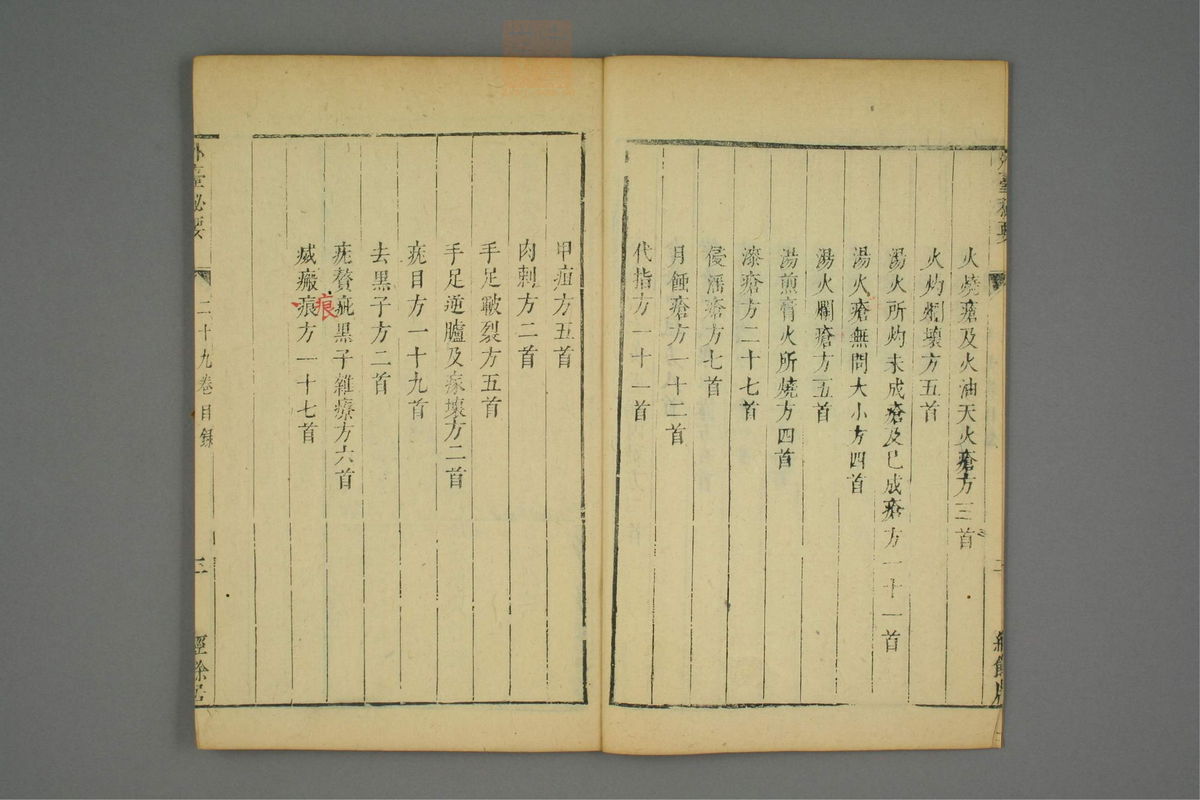 火燒瘡及火油天火瘡方三首
火灼爛壞方五首
湯火所灼未成瘡及已成瘡方一十一首
湯火瘡無問大小方四首
湯火爛瘡方五首
湯煎膏火所燒方四首
漆瘡方二十七首
侵淫瘡方七首
月蝕瘡方一十二首
代指方一十一首
甲疽方五首
肉刺方二首
手足皸裂方五首
手足逆臚及瘃壞方二首
疣目方一十九首
去黑子方二首
疣贅疵黑子雜療方六首
滅瘢痕方一十七首
痕
外臺秘要
二十九卷目錄
三
經餘居